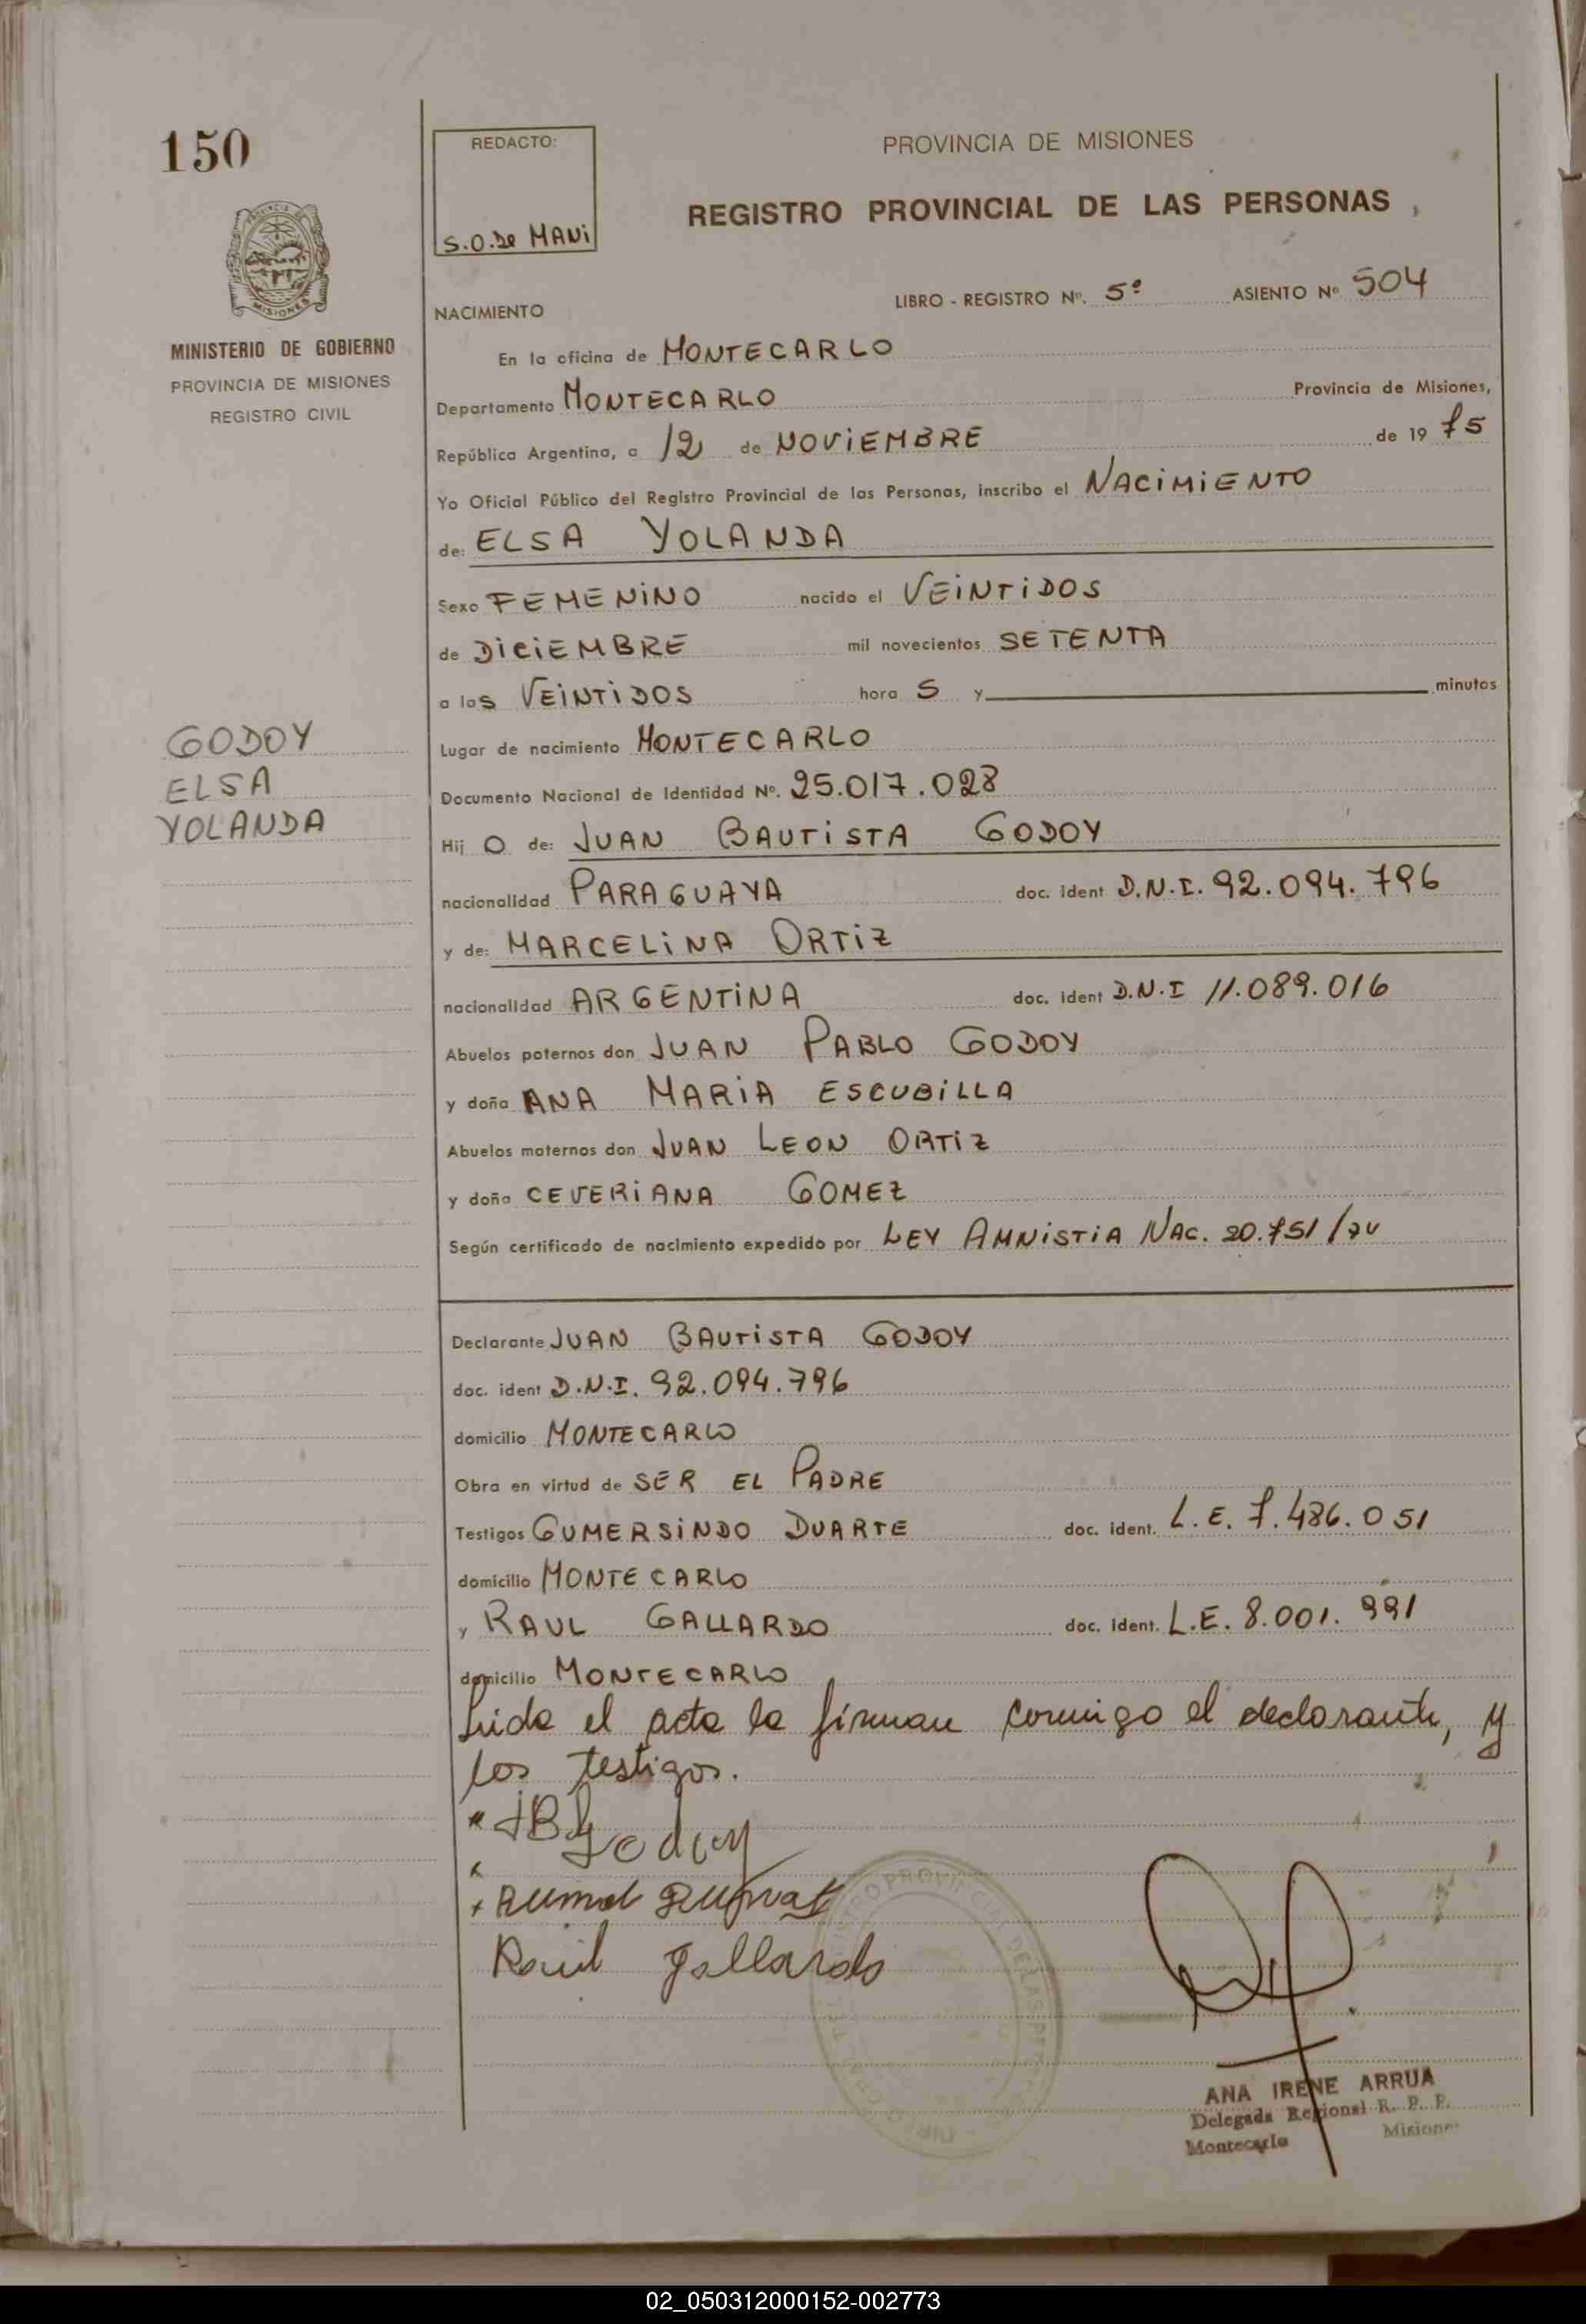 150
REDACTO:
S.O. De MAVi
PROVINCIA DE MISIONES
REGISTRO PROVINCIAL DE LAS PERSONAS
MINISTERIO DE GOBIERNO
PROVINCIA DE MISIONES
REGISTRO CIVIL
NACIMIENTO
LIBRO - REGISTRO Nº. 5º ASIENTO Nº 504
En la oficina de MONTECARLO
Departamento MONTECARLO Provincia de Misiones,
República Argentina, a 12 de NOVIEMBRE de 19 75
Yo Oficial Público del Registro Provincial de las Personas, inscribo el NACIMIENTO
de: ELSA YOLANDA
Sexo FEMENINO nacido el VEINTIDOS
de DICIEMBRE mil novecientos SETENTA
a las VEINTIDOS hora S y minutos
Lugar de nacimiento MONTECARLO
GODOY
ELSA
YOLANDA
Documento Nacional de Identidad Nº. 25.017.028
Hij O de: JUAN BAUTISTA GODOY
nacionalidad PARAGUAYA doc. ident D.N.I. 92.094.796
y de: MARCELINA ORTIZ
nacionalidad ARGENTINA doc. ident D.N.I 11.089.016
Abuelos paternos don JUAN PABLO GODOY
y doña ANA MARIA ESCUBILLA
Abuelos maternos don JUAN LEON ORTIZ
y doña CEVERIANA GOMEZ
Según certificado de nacimiento expedido por LEY AMNISTIA NAC. 20.751/74
Declarante JUAN BAUTISTA GODOY
doc. ident D.N.I. 92.094.796
domicilio MONTECARLO
Obra en virtud de SER EL PADRE
Testigos GUMERSINDO DUARTE doc. ident. L.E. 7.486.051
domicilio MONTECARLO
y RAUL GALLARDO doc. ident. L.E. 8.001.991
domicilio MONTECARLO
Leida el acta la firman conmigo el declarante, y
los testigos.
JBGodoy
Raul Gallardo
ANA IRENE ARRUA
Delegada Regional R. P. P.
Montecarlo Misiones
02_050312000152-002773